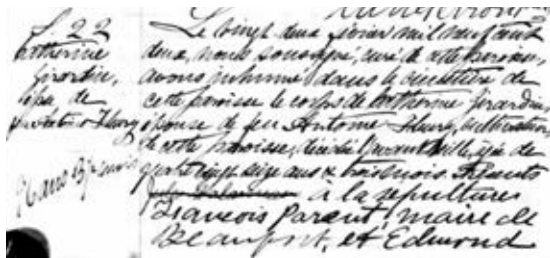 S. 22
Catherine
Girardin,
épse de
feu Antoine Fleury
96 ans 3 mois
Le vingt deux février mil neuf cent
deux, nous soussigné, curé de cette paroisse,
avons inhumé dans le cimetière de
cette paroisse le corps de Catherine Girardin,
épouse de feu Antoine Fleury, cultivateur,
de cette paroisse, décédée l'avant veille, âgée de
quatre vingt seize ans & trois mois. Présents
à la sépulture
François Parent, maire de
Beauport, et Edmond